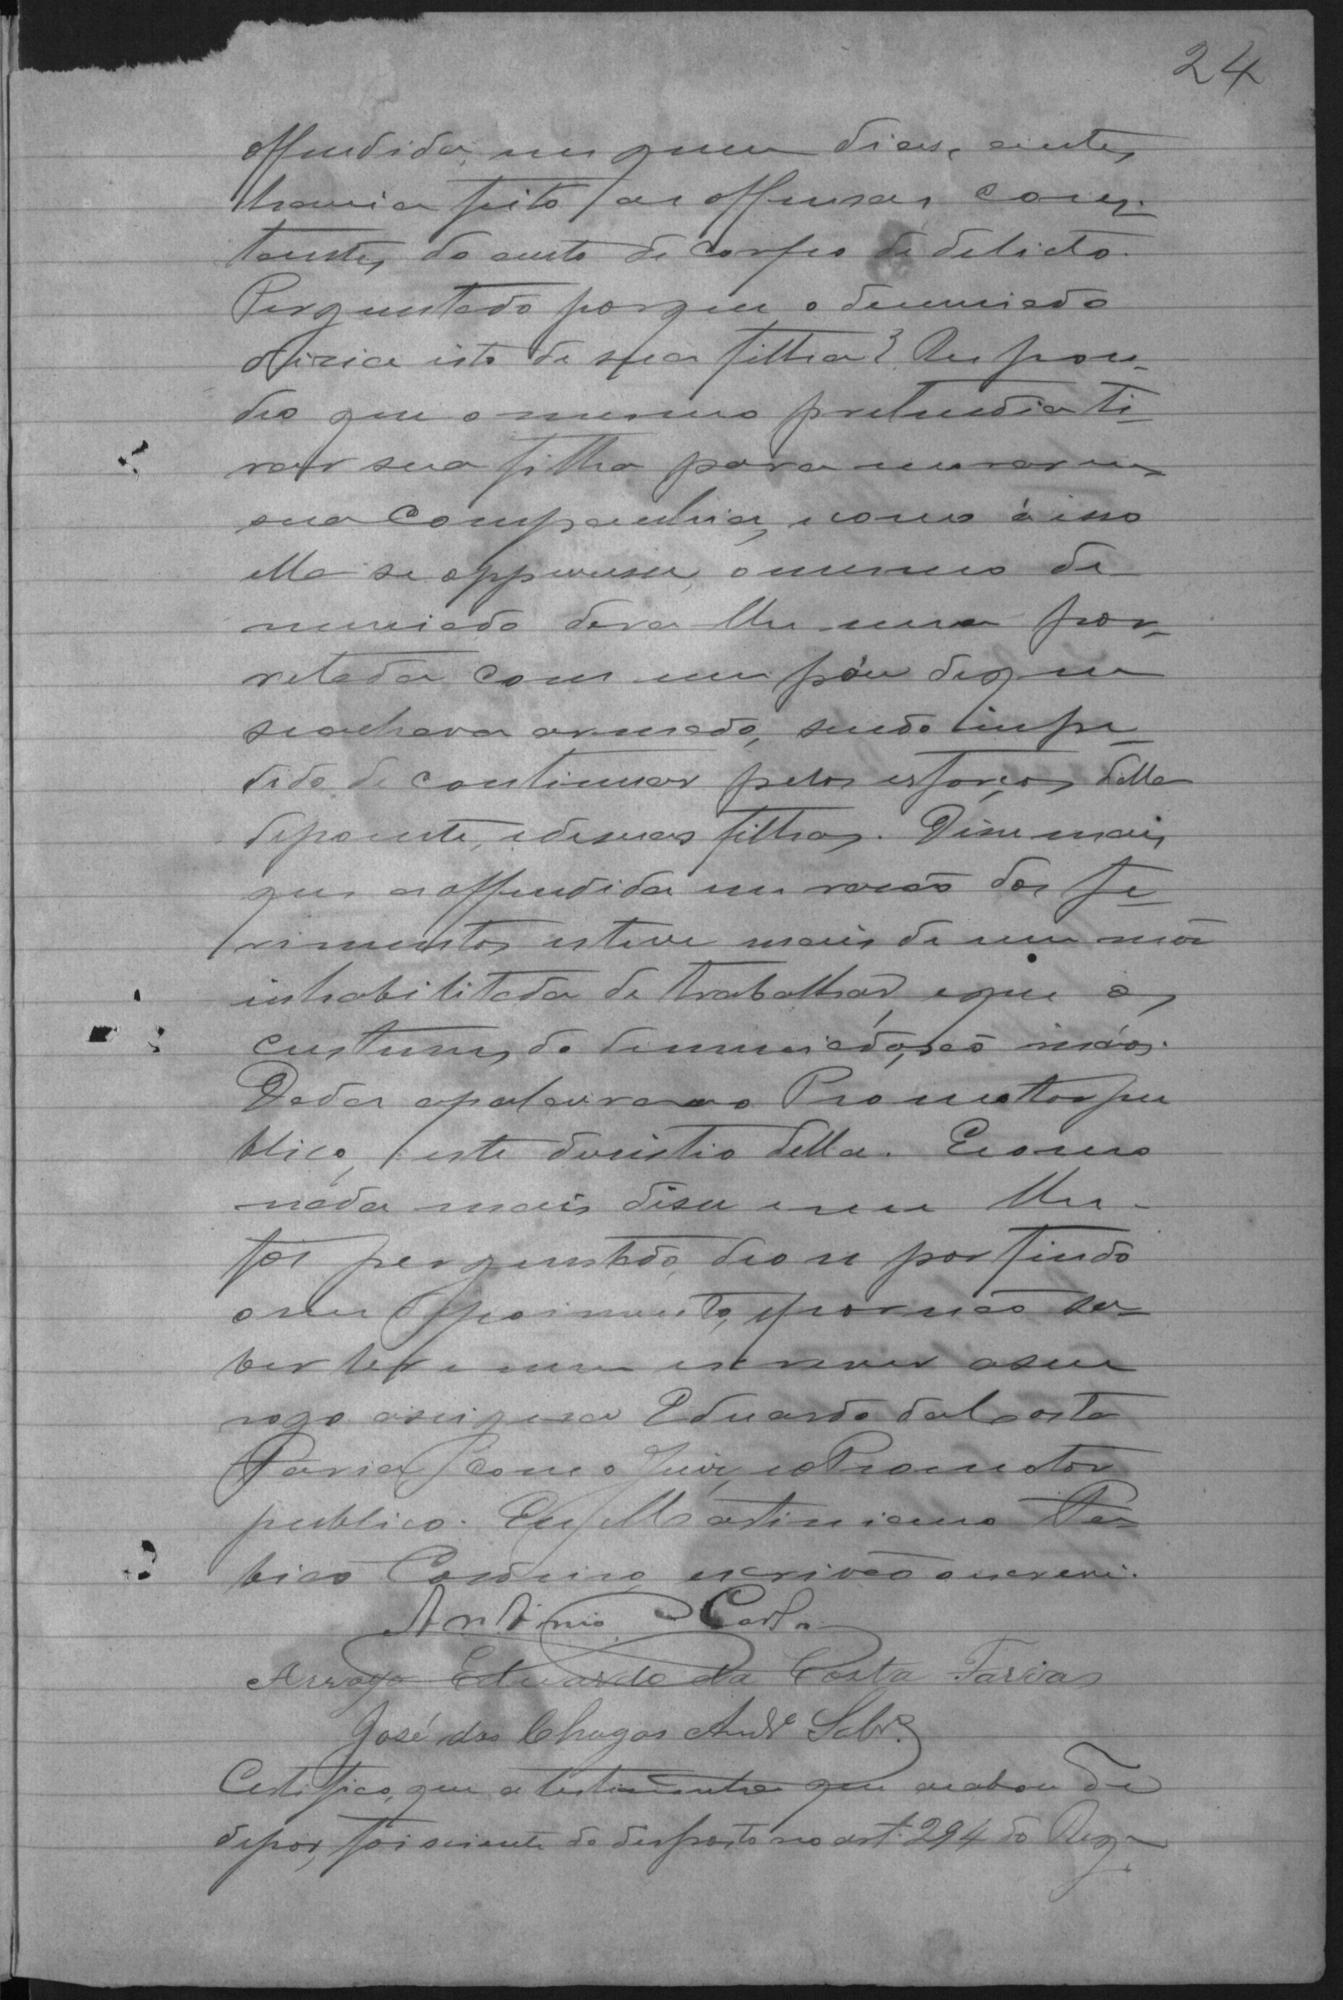 24
offendida, em quem dias antes
havia feito as offensas cons-
tantes do auto de corpo de delicto.
Perguntado porque o denunciado
dizia isto de sua filha? Respon-
deo que o mesmo pretendia ti-
rar sua filha para morar em
sua companhia, e como á isso
ella se oppusesse, o mesmo de-
nunciado dera lhe uma por-
retada com um páu de que
se achava armado, sendo impe-
dido de continuar pelos esforços della
depoente, e de suas filhas. Disse mais
que a offendida em rasão dos fe-
rimentos esteve mais de um mez
inhabilitada de trabalhar, e que os
custumes do denunciado, são máos.
Dada a palavra ao Promotor pu
blico, este desistio della. E como
nada mais disse e nem lhe
foi perguntado, deo se por findo
o seu depoimento, e por não sa-
ber ler e nem escrever a seu
rogo assigna Eduardo da Costa
Farias com o Juiz, e o Promotor
publico. Eu, Martiniano
Cordeiro, escrivão o escrevi.
Antonio
Arrogo Eduardo da Costa Farias
José das Chagas Andr.e Sobr.o
Certifico, que a testimunha que acabou de
depor, foi sciente do desposto no art. 294 do Reg.